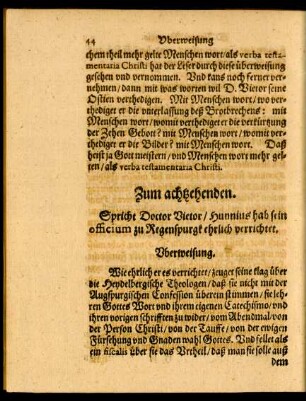 44 Vberweisung
chem theil mehr gelte Menschen wort/als verba testa-
mentaria Christi hat der Leser durch diese überweisung
gesehen vnd vernommen. Vnd kans noch ferner ver-
nehmen/dann mit was worten wil D. Victor seine
Ostien verthedigen. Mit Menschen wort/wo ver-
thediget er die vnterlassung deß Brotbrechens: mit
Menschen wort/womit verthediget er die verkürtzung
der Zehen Gebott? mit Menschen wort/womit ver-
thediget er die Bilder? mit Menschen wort. Daß
heist ja Got meistern/vnd Menschen wort mehr gel-
ten/als verba testamentaria Christi.
Zum achtzehenden.
Spricht Doctor Victor/Hunnius hab sein
officium zu Regenspurgk ehrlich verrichtet.
Vberweisung.
Wie ehrlich er es verrichtet/zeuget seine klag über
die Heydelbergische Theologen/daß sie nicht mit der
Augspurgischen Confession überein stimmen/sie leh-
ren Gottes Wort vnd ihrem eigenen Catechismo/vnd
ihren vorigen schrifften zu wider/vom Abendmal/von
der Person Christi/von der Tauffe/von der ewigen
Fürsehung vnd Gnaden wahl Gottes. Vnd fellet als
ein fiscalis über sie das Vrtheil/daß man sie solle auß
dem